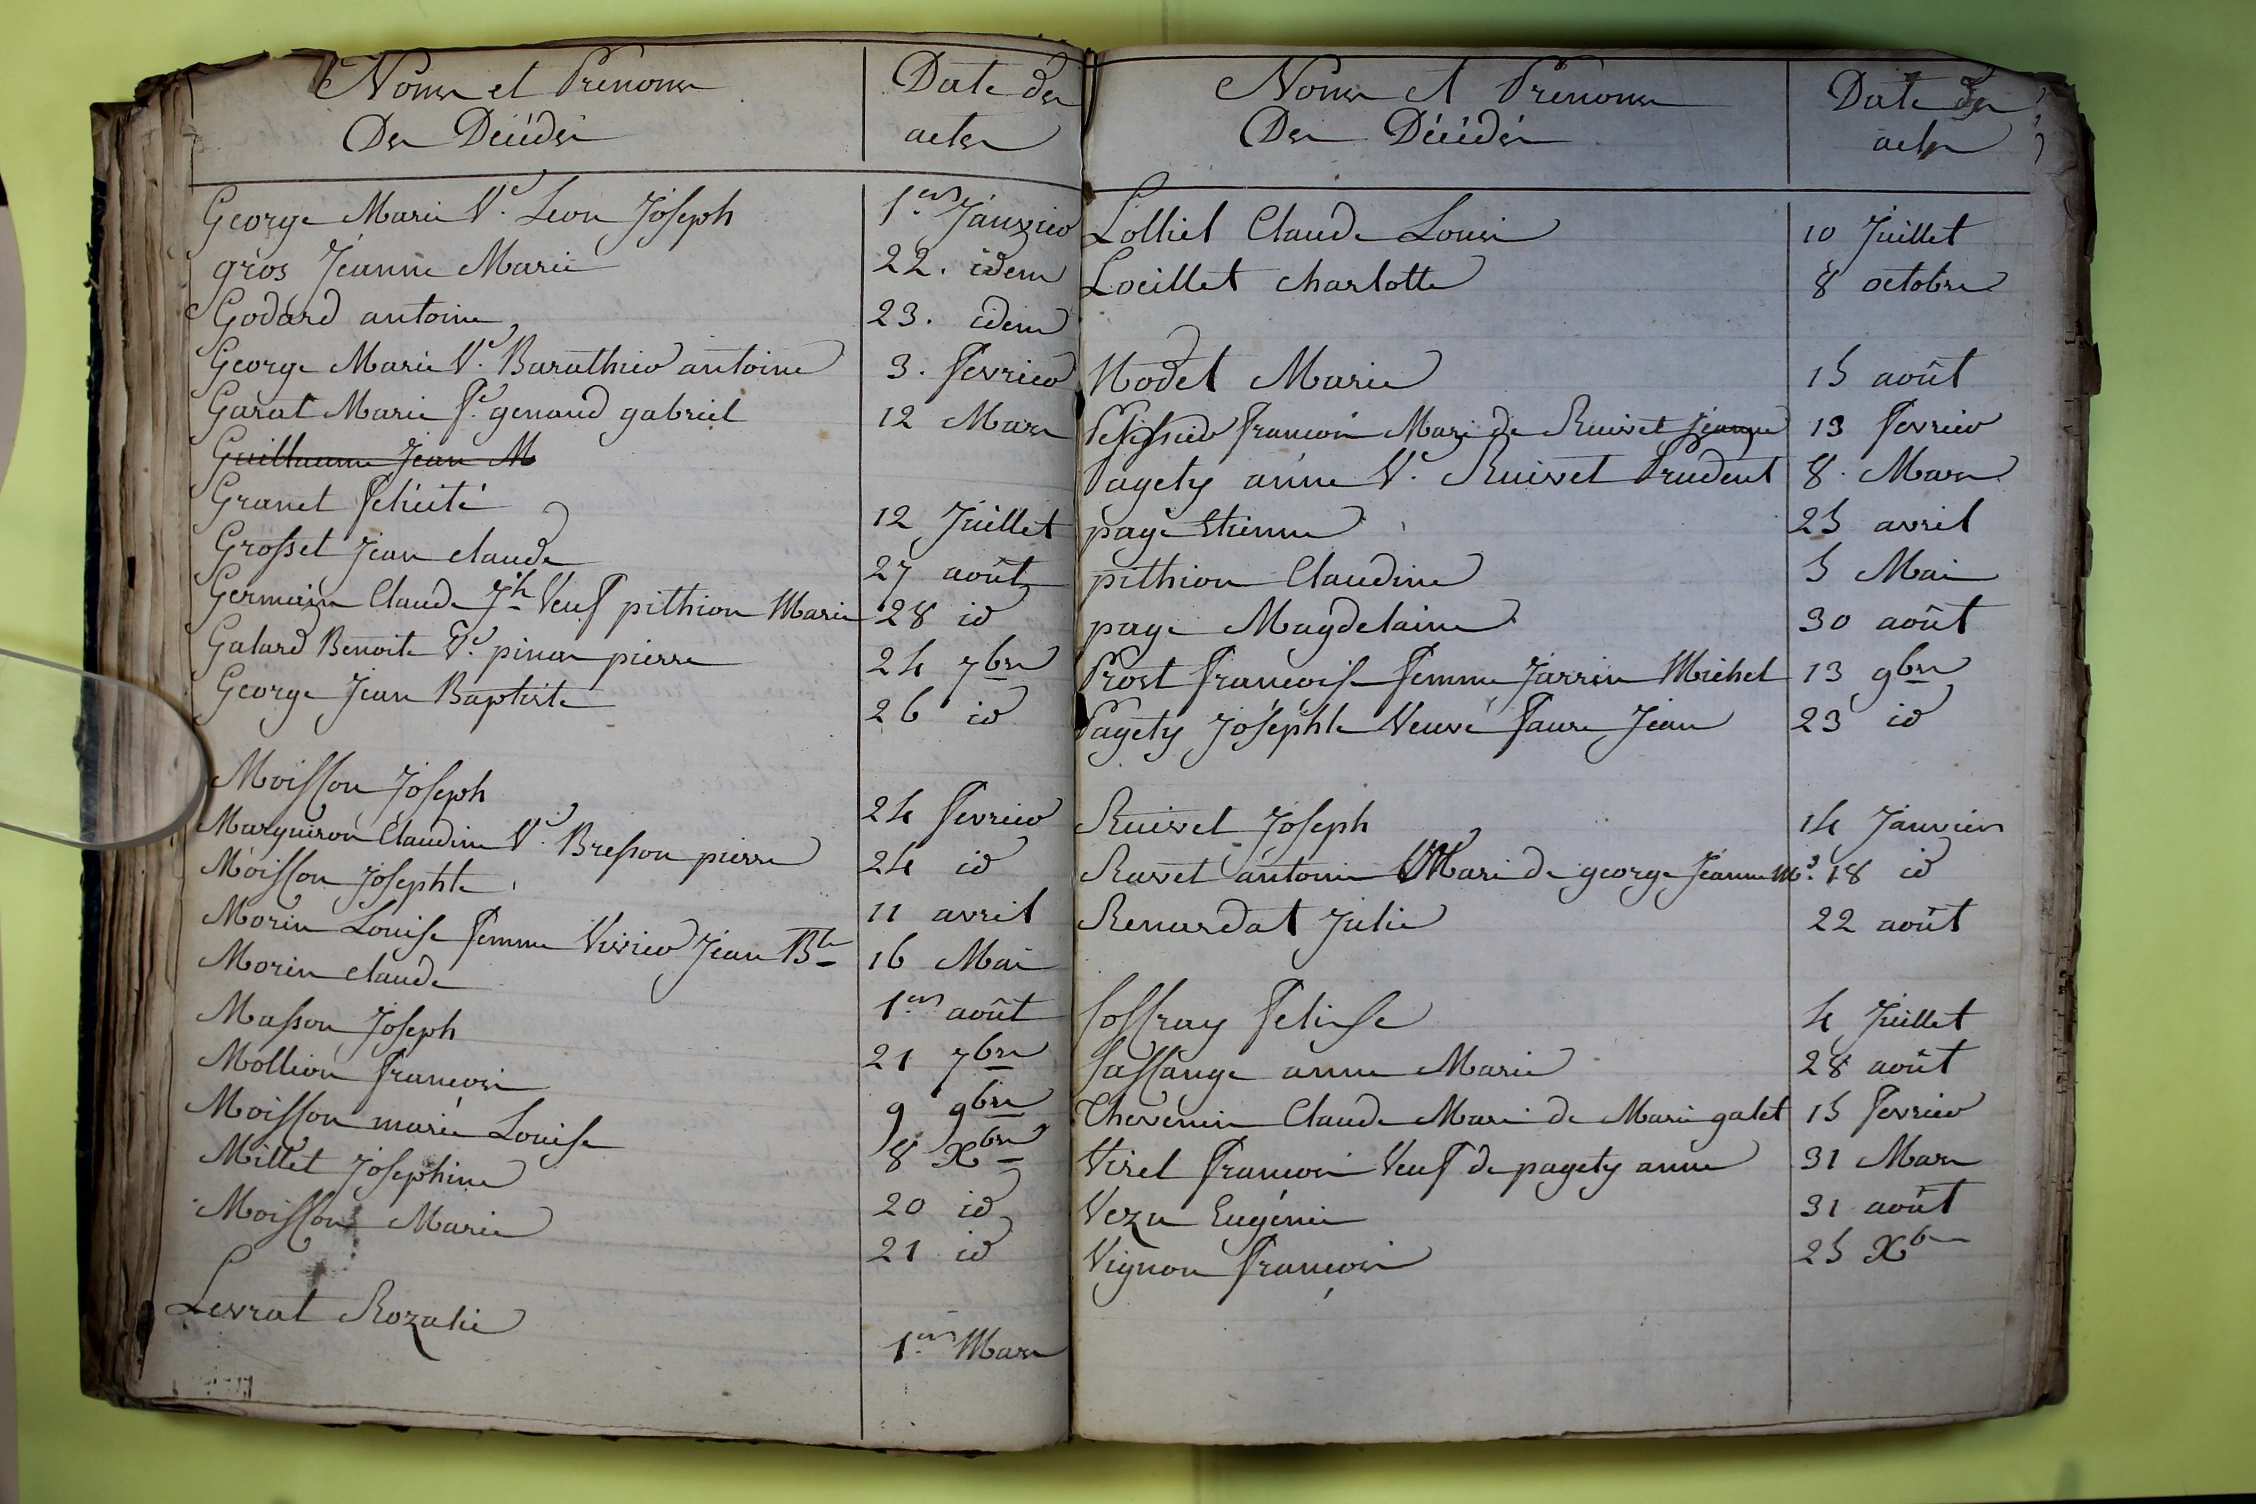 Noms et Prenoms
Des Décédés
Date des
actes
George Marie Ve. Leon Joseph 1er Janvier
gros Jeanne Marie 22. idem
Godard antoine 23. idem
George Marie Ve. Barathier antoine 3. fevrier
Garat Marie fe. genaud gabriel 12 Mars
Guillaume Jean M
Granet felicité 12 Juillet
Grosset Jean claude 27 août
Germain Claude Jh Veuf pithion Marie 28 id
Galard Benoite Ve. pinon pierre 24 7bre
George Jean Baptiste 26 id
Moisson Joseph 24 fevrier
Marguiron Claudine Ve. Bresson pierre 24 id
Moisson Josephte 11 avril
Morin Louise femme Vivier Jean Bte 16 Mai
Morin claude 1er août
Masson Joseph 21 7bre
Mollion francois 9 9bre
Moisson marie Louise 8 Xbre
Millet Josephine 20 id
Moisson Marie 21 id
Levrat Rozalie 1er Mars
Noms et Prenoms
Des Décédés
Date des
actes
Lolliet Claude Louis 10 Juillet
Loeillet charlotte 8 octobre
Nodet Marie 15 août
francois Mari de Ruivet Jeanne 13 fevrier
Pagety anne Ve. Ruivet Prudent 8. Mars
page Etienne 25 avril
pithion Claudine 5 Mai
page Magdelaine 30 août
Prost francoise femme Jarrin Michel 13 9bre
Pagety Josephte Veuve faure Jean 23 id
Ruivet Joseph 14 Janvier
Ravet antoine Mari de george Jeanne Me. 18 id
Renardat Julie 22 août
Soffray felise 4 Juillet
Sassange anne Marie 28 août
Thevenin Claude Mari de Marie galet 15 fevrier
Virel francois Veuf de pagety anne 31 Mars
Vezu Eugénie 31 août
Vignon françois 25 Xbre